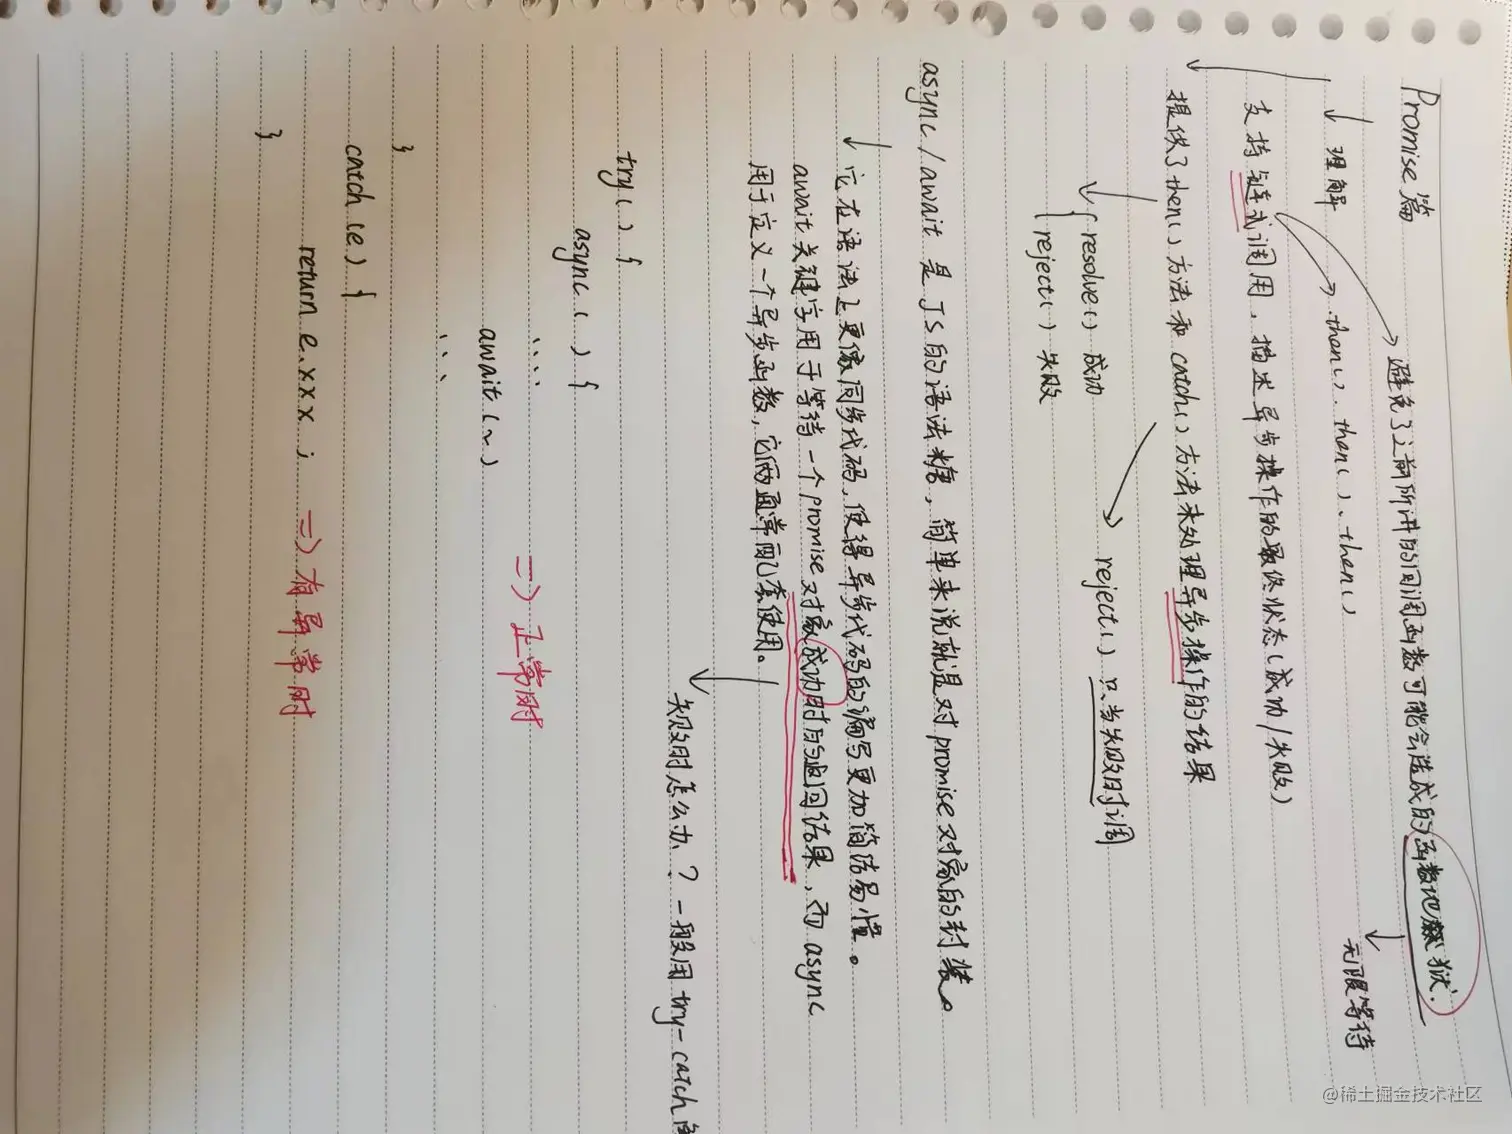 Promise篇
避免了之前所讲的回调函数可能会造成的函数地狱.
无限等待
理解
.then().then().then()
支持链式调用，描述异步操作的最终状态(成功/失败)
提供了then()方法和catch()方法来处理异步操作的结果
resolve() 成功
reject() 失败
reject() 只当失败时调
async/await 是JS的语法糖，简单来说就是对promise对象的封装。
它在语法上更像同步代码，使得异步代码的编写更加简洁易懂。
await关键字用于等待一个promise对象成功时后返回结果，而async
用于定义一个异步函数，它两通常配套使用。
失败时怎么办？一般用try-catch
try() {
async() {
....
await(~)
...
=> 正常时
}
catch(e) {
return e.xxx ; => 有异常时
}
@稀土掘金技术社区